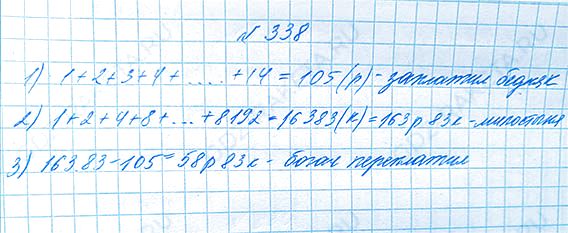 № 338
1) 1+2+3+4+.....+14 = 105(р) - заплатил бедняк
2) 1+2+4+8+...+8192=16383(к)=163р 83к - милостыня
3) 163.83-105=58р 83к - богач переплатил